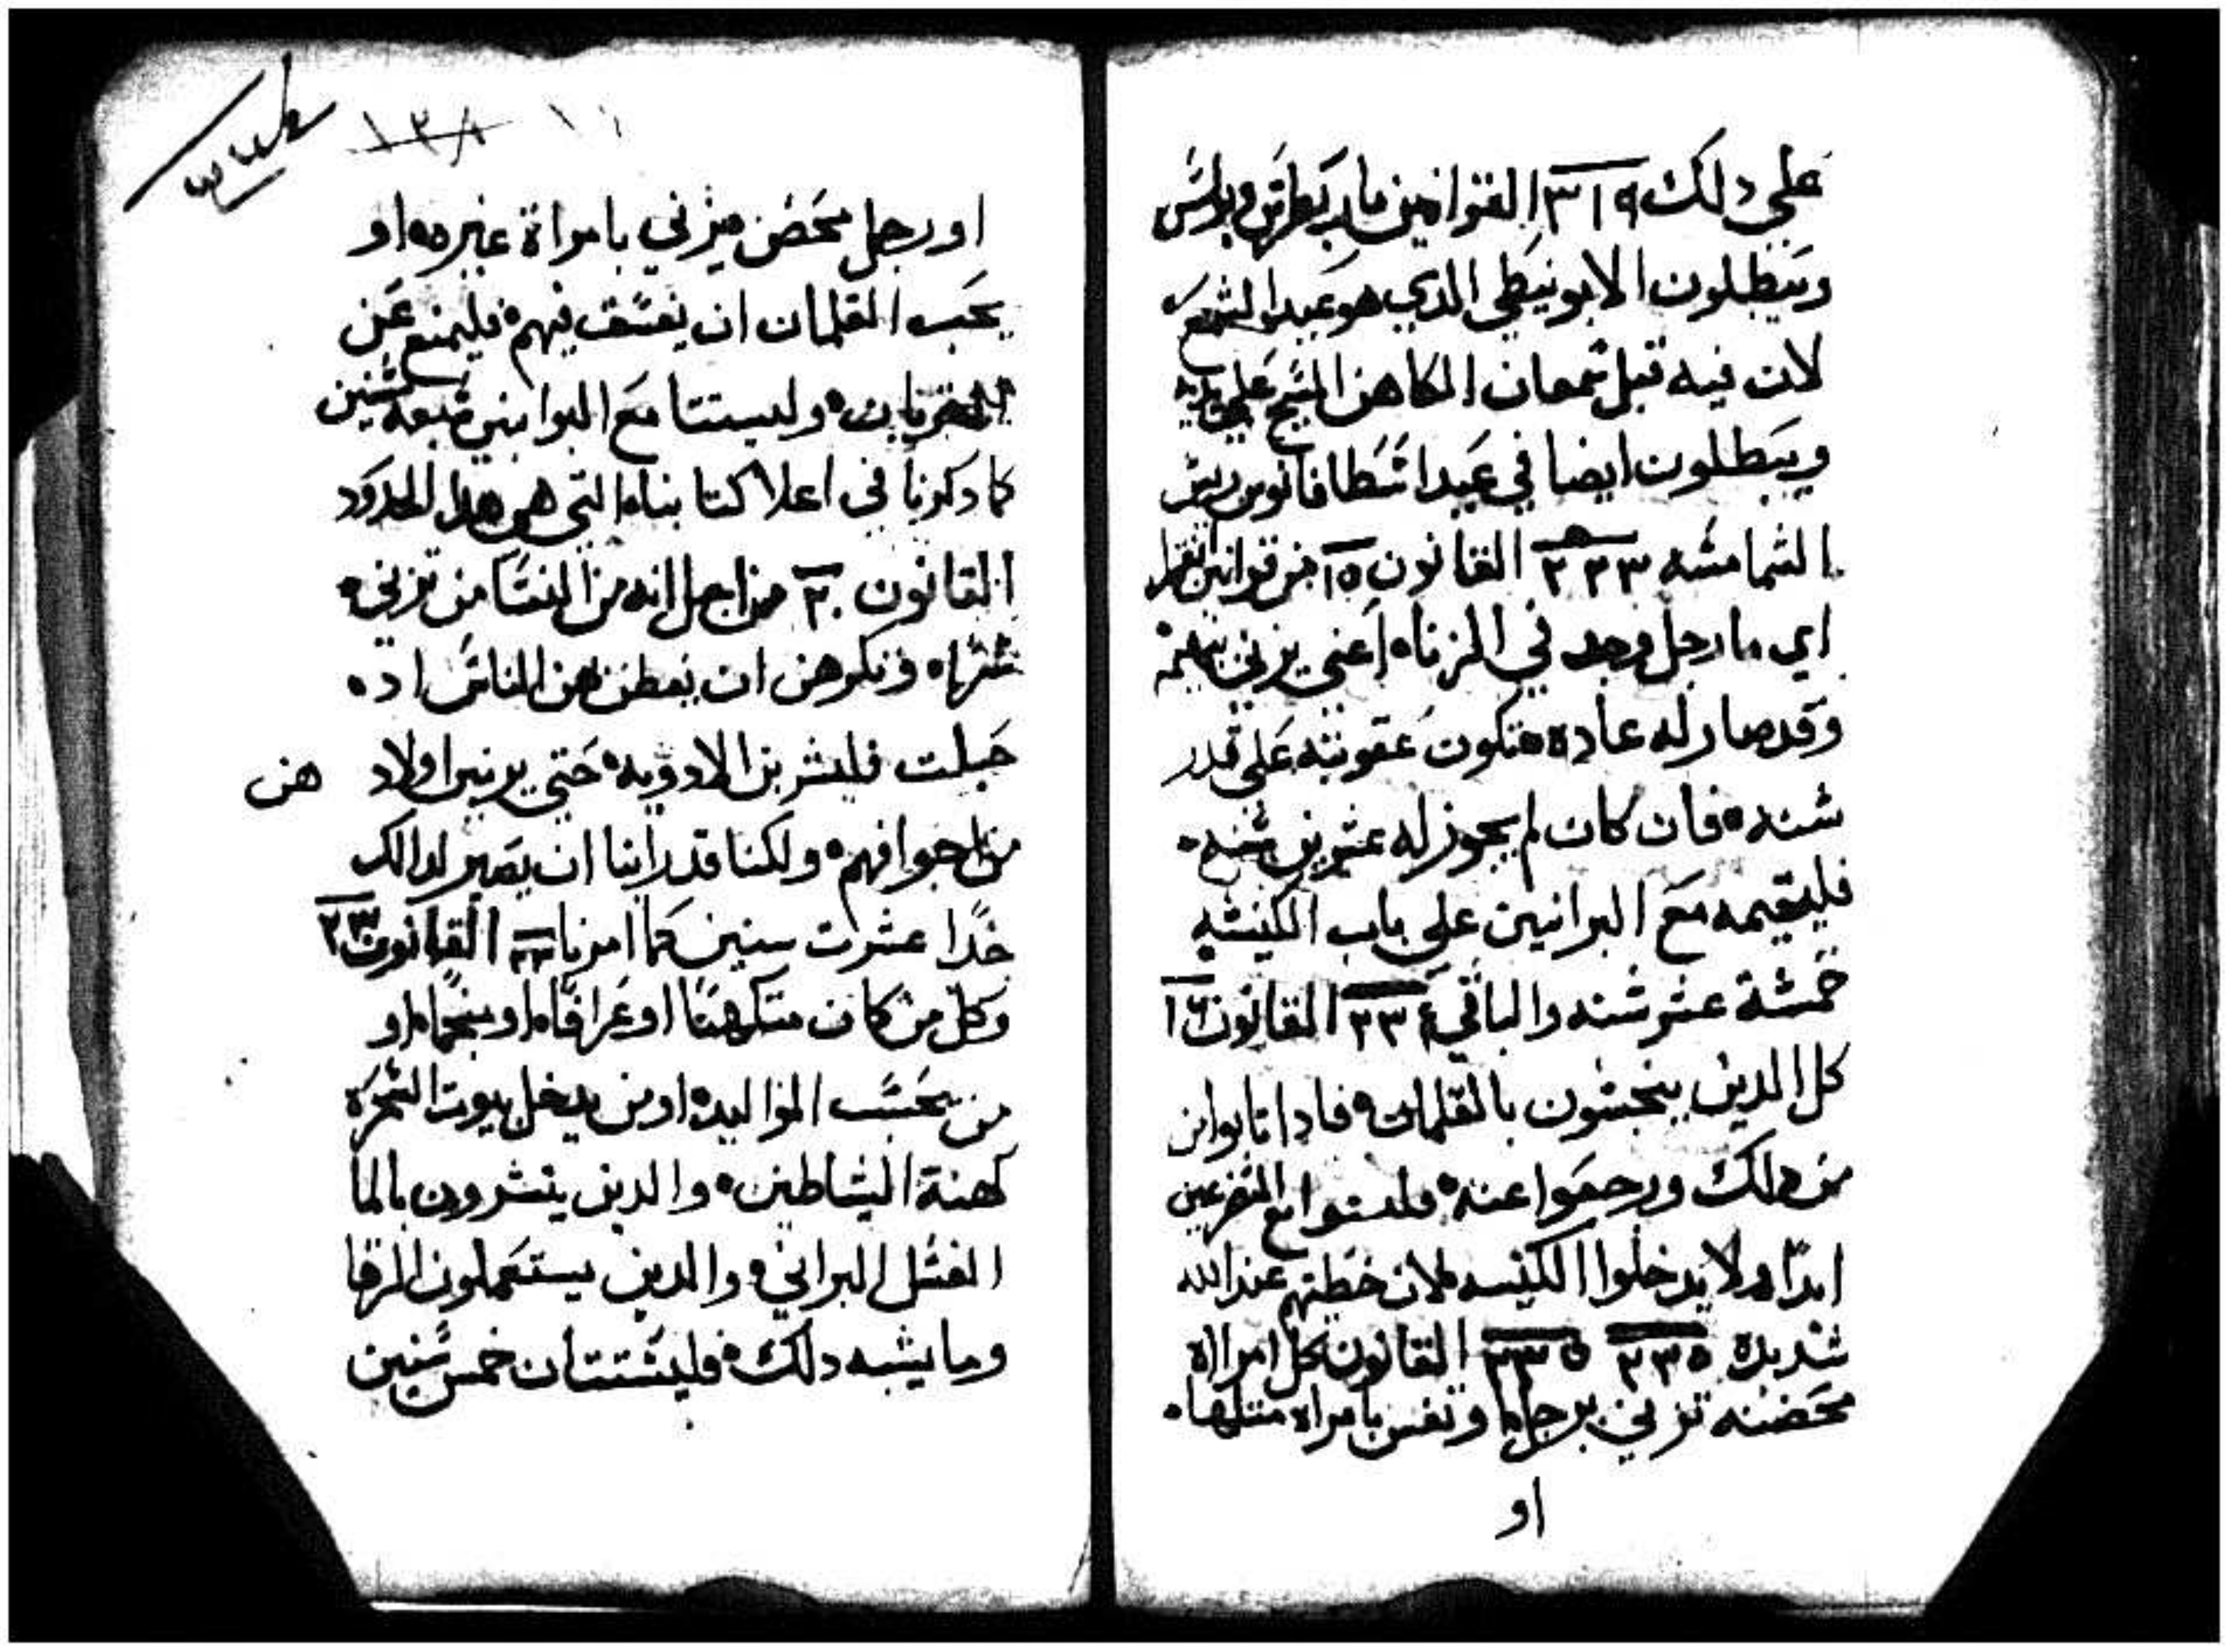 علي دلك ٣١٩ القوانين مار بطرس وبولس
ويبطلون الابونيطي الدي هو عيد الشمع
لان فيه قبل شمعان الكاهن المسيح علي يديه
ويبطلون ايضا في عيد اسطافانوس ريس
الشمامسه ٣٣٣ القانون ١٥ من قوانين
اي ما رجل وجد في الزناه اعني يزني ببهيمه
وقد صار له عاده فتكون عقوبته علي قدر
سنه فان كان لم يجوز له عشرين سنه
فليقيمه مع البرانين علي باب الكنيسه
خمسة عشر سنه والباقي ٣٣٤ القانون ١٦
كل الدين ينجسون بالغلمان فادا تابوا من
من دلك ورجعوا عنه مع المتضرعين
ابدا ولا يدخلوا الكنيسه لان خطيتهم عند الله
شديده ٣٣٥ القانون كل امراة
محصنه تزني برجل او تفسق بامراه مثلها
او
١٣٨
او رجل محصن يزني بامراة غيره او
يحب الغلمان ان يفسق فيهم فليمنع عن
القربان وليستتا مع البوابين سبعه سنين
كما دكرنا في اعلا كتابنا التي هي هدا الحدود
القانون ٢٠ من اجل انه من النسا من تزني
سرا ونكرهن ان يفطن هن الناس اد
حبلت فليشربن الادويه حتي يرمين اولاد هن
من اجوافهم ولكنا قد راينا ان يصير لدالك
حدا عشرت سنين كما امرنا القانون ٢٣
وكل من كان متكهنا او عرافا او منجما او
من يحسب المواليد او من يدخل بيوت السحره
كهنة الشياطين والدين ينشرون بالما
الغسل البراني والدين يستعملون الرقا
وما يشبه دلك فليستتان خمس سنين